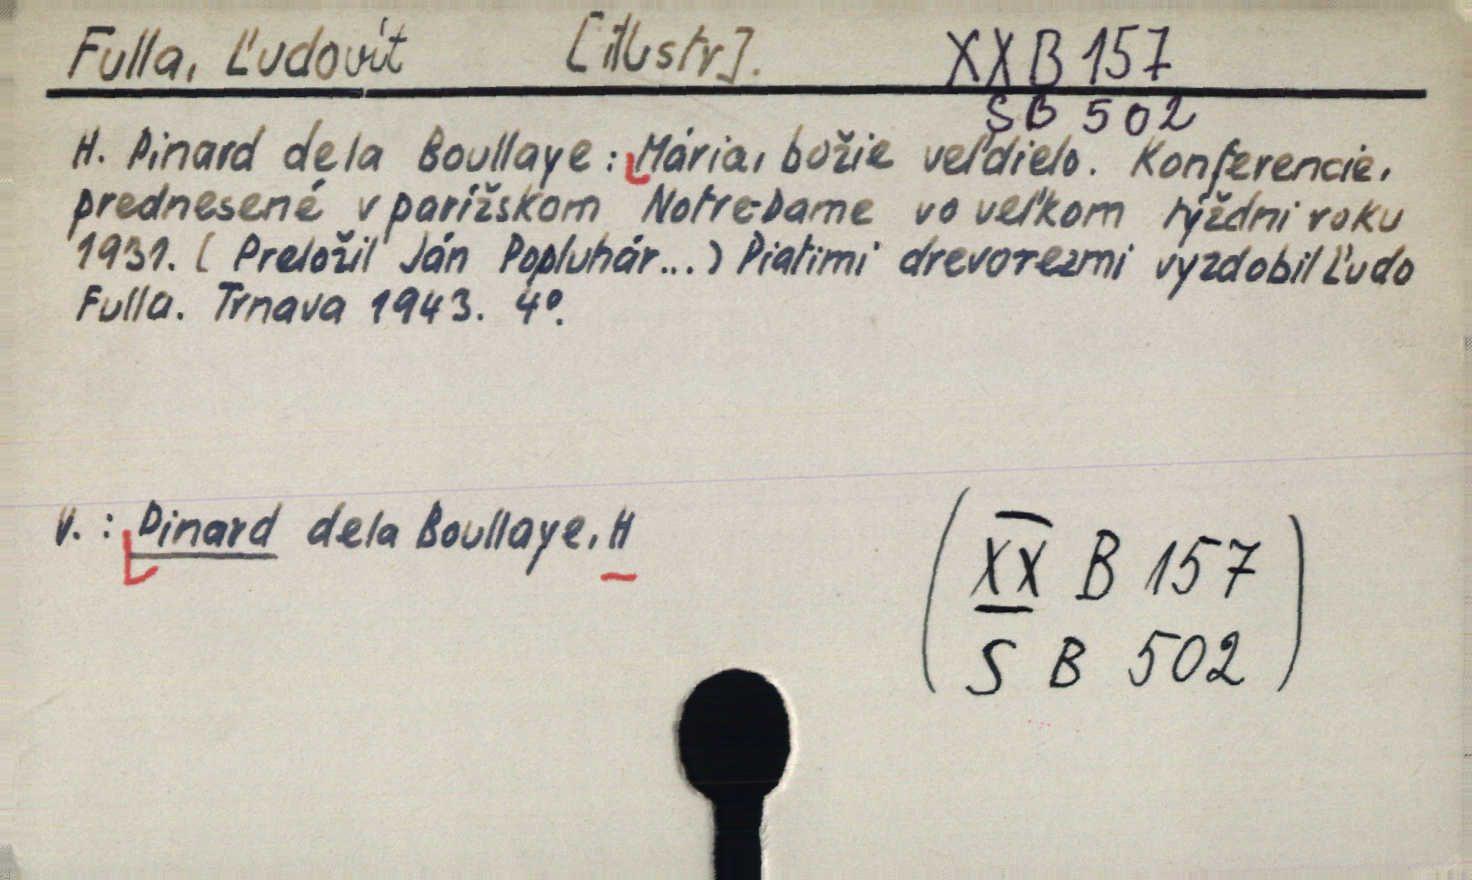 Fulla, Ľudovít [ilustr]. XX B 157
SB 502
H. Pinard de la Boullaye: Mária, božie veľdielo. Konferencie,
prednesené v parížskom Notre-Dame vo veľkom týždni roku
1931. (Preložil Ján Popluhár...) Piatimi drevorezmi vyzdobil Ľudo
Fulla. Trnava 1943. 4°.
V.: Pinard de la Boullaye, H
(XX B 157
S B 502)